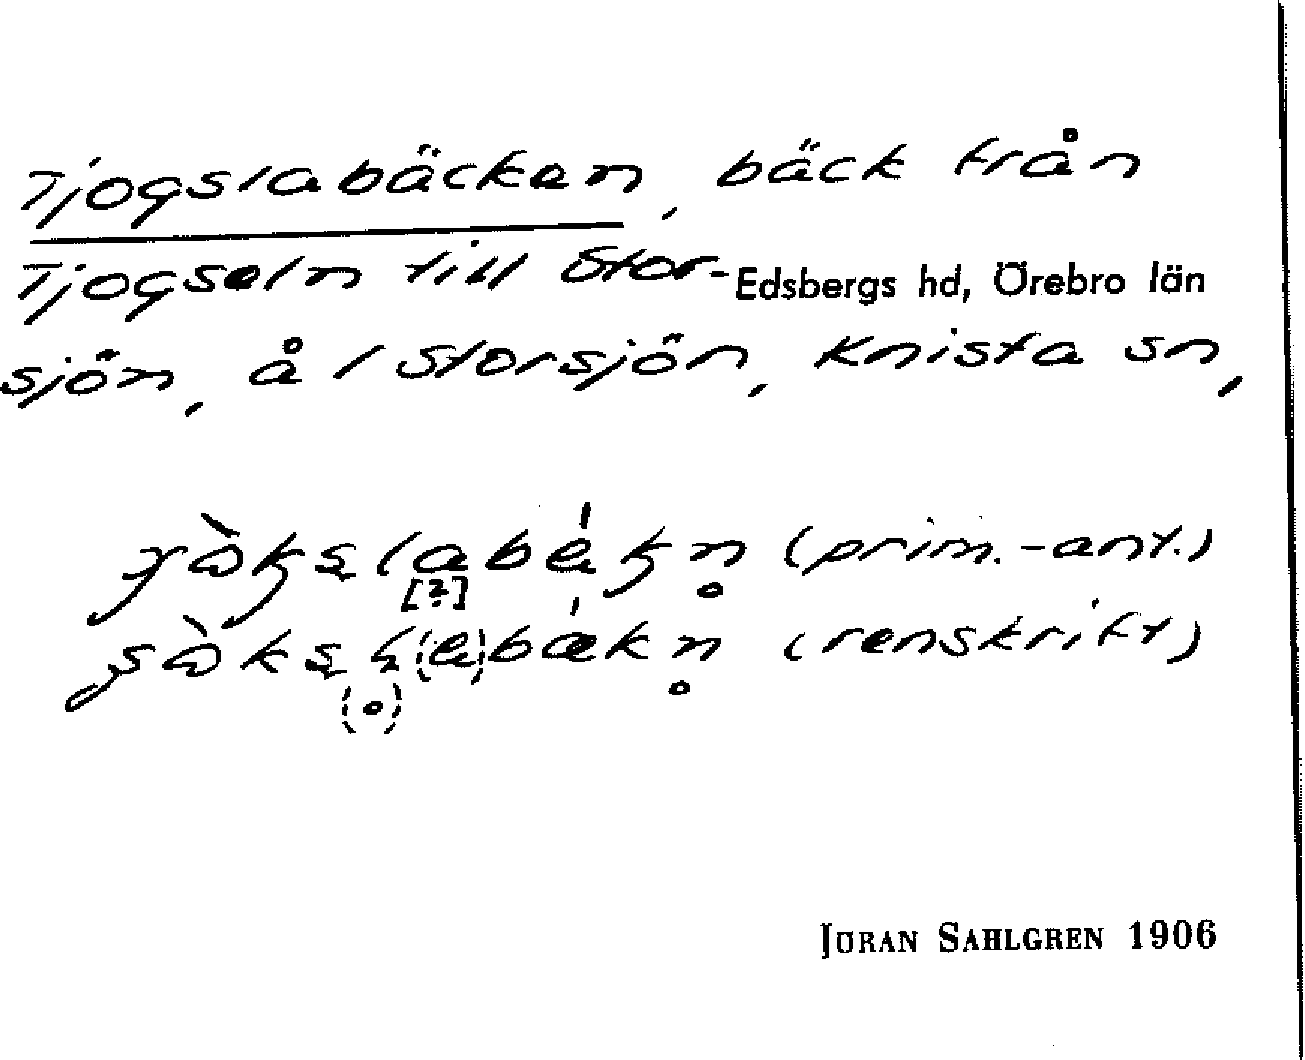 Tjogslabäcken, bäck från
Tjogseln till Stor-
Edsbergs hd, Örebro län
sjön, å / Storsjön, Knista sn,
(prim.-ant.)
[?]
(renskrift)
JÖRAN SAHLGREN 1906